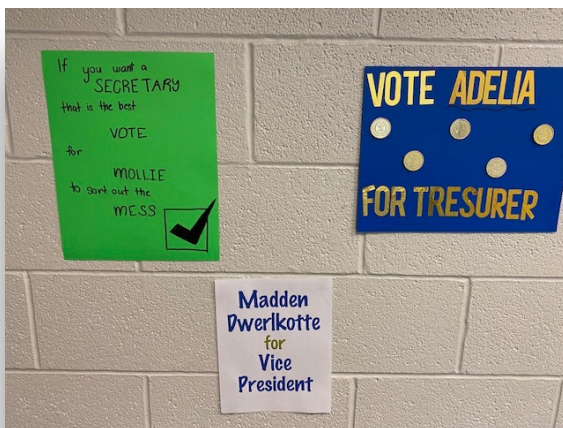 If you want a
SECRETARY
that is the best
VOTE
for
MOLLIE
to sort out the
MESS
VOTE ADELIA
FOR TRESURER
Madden
Dwerlkotte
for
Vice
President